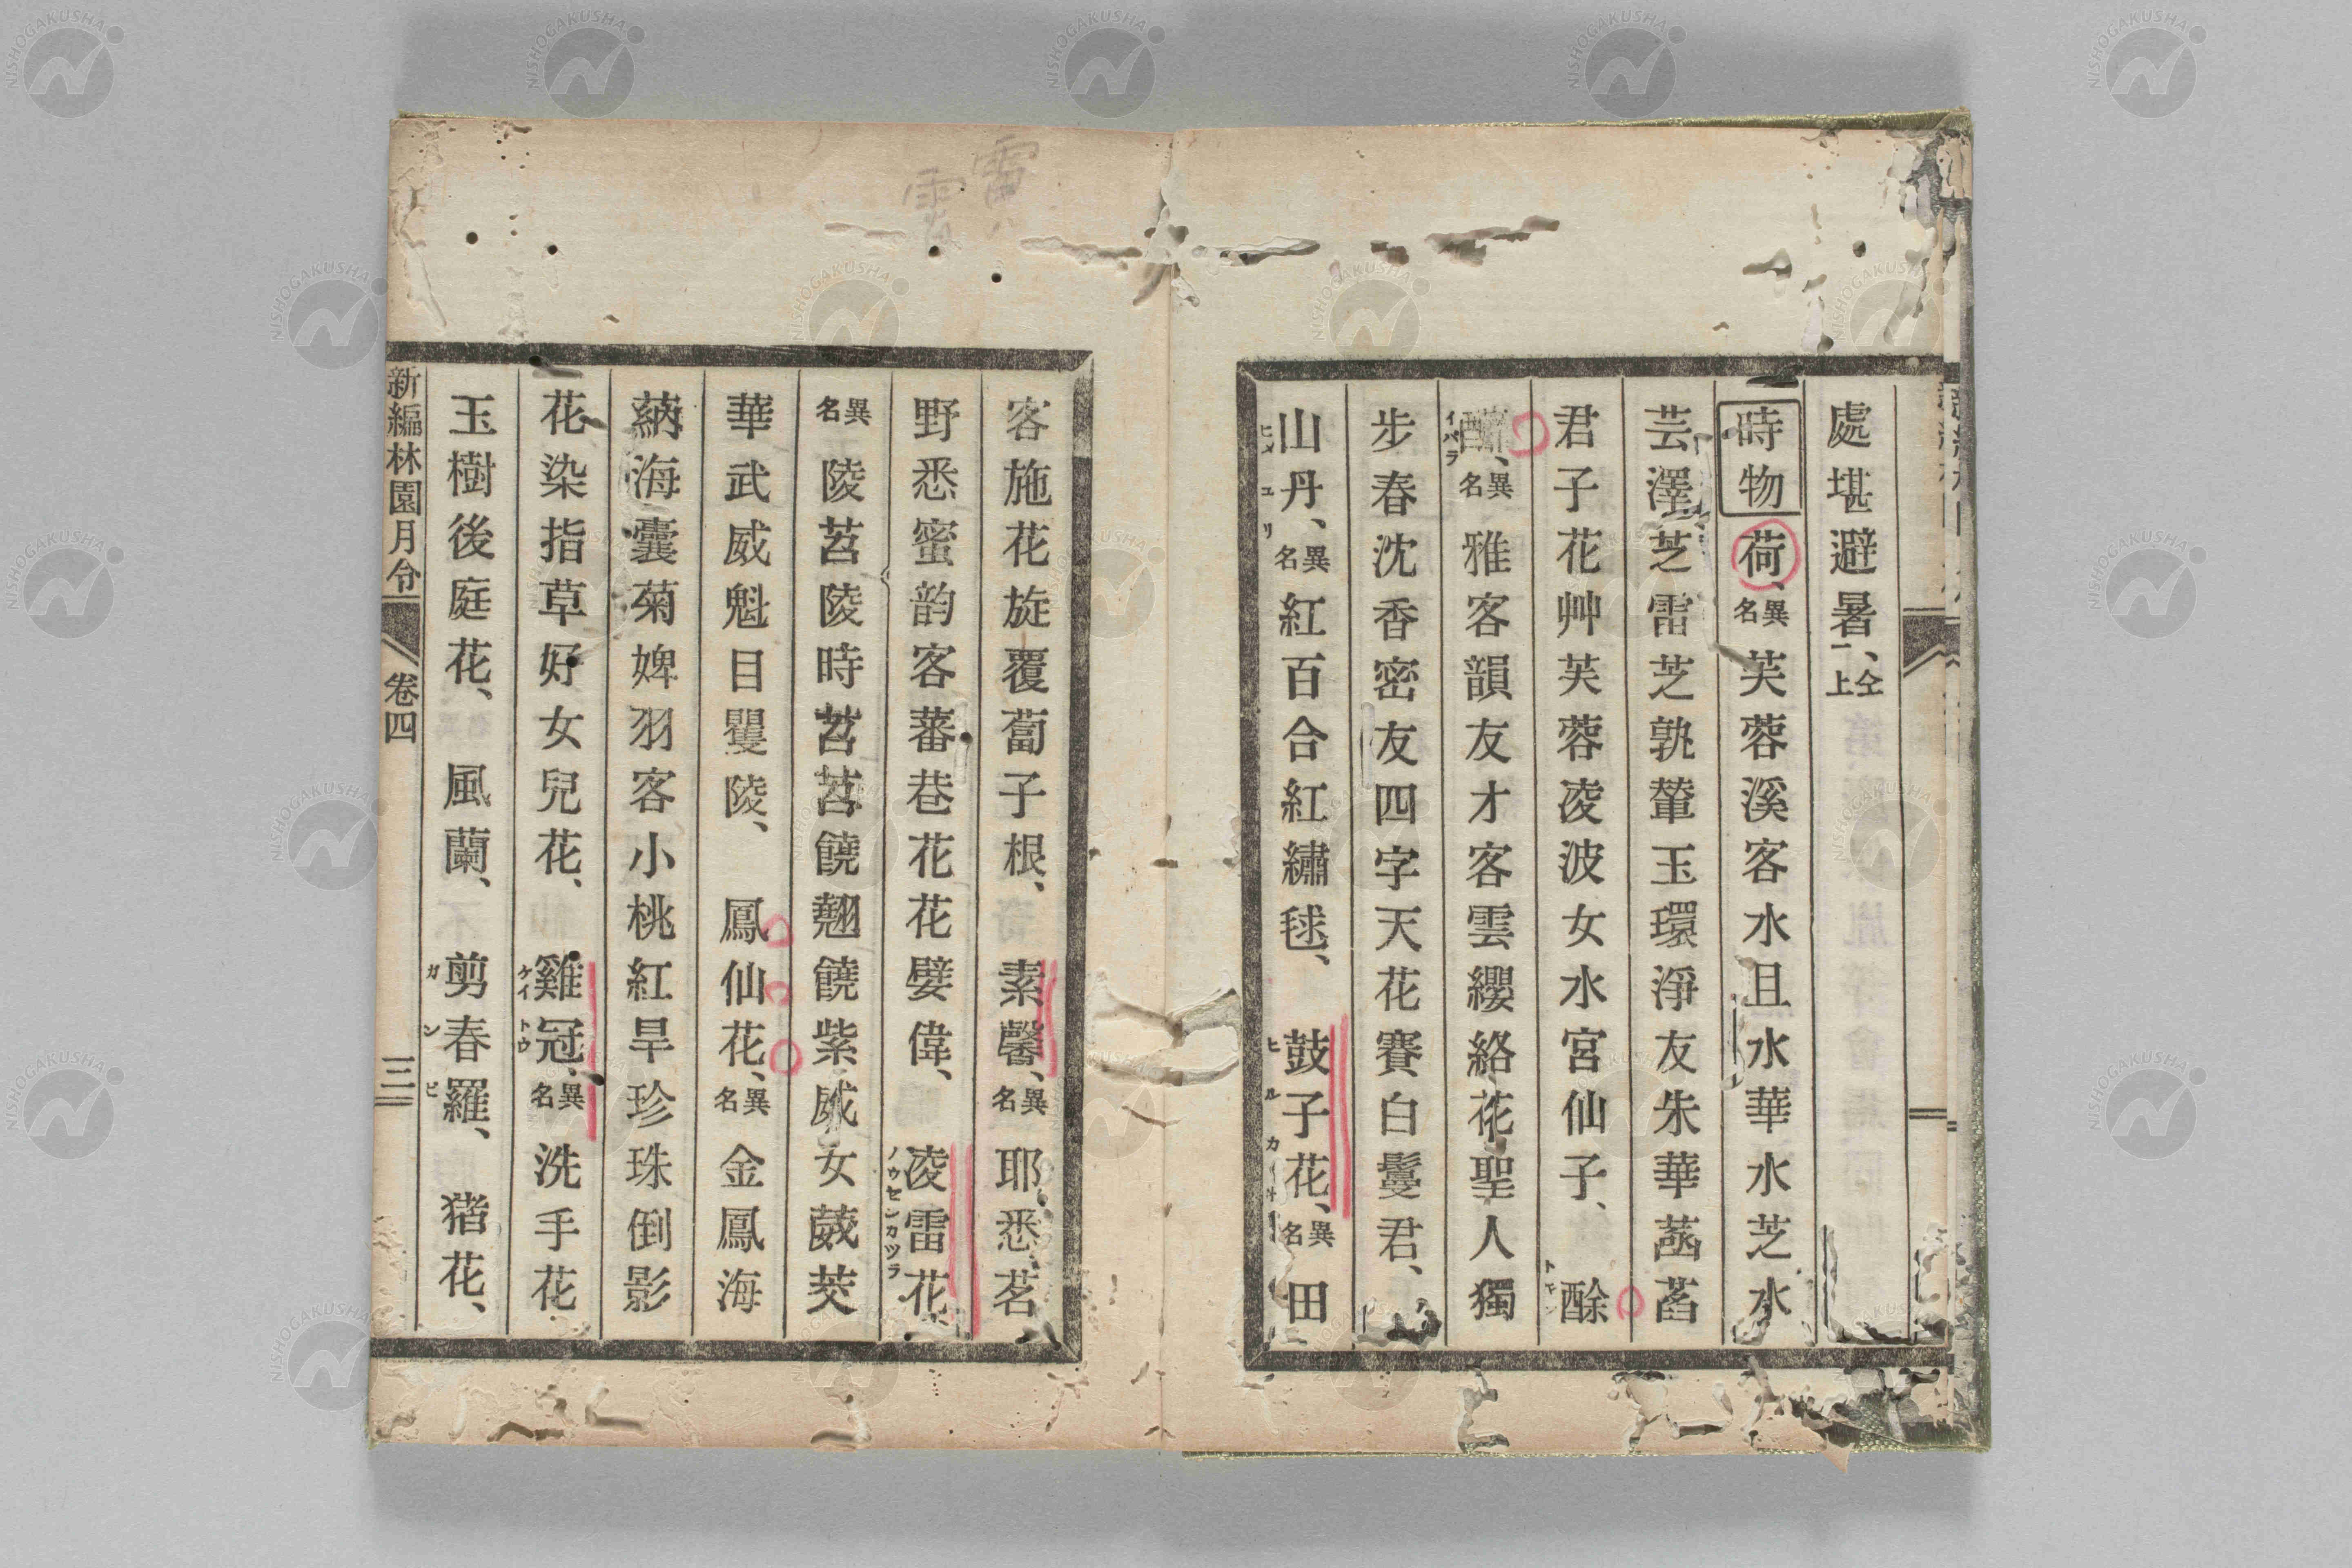 處堪避暑、仝上
時物 荷、異名 芙蓉溪客水且水華水芝水
芸澤芝雷芝孰輦玉環淨友朱華菡萏
君子花艸芙蓉凌波女水宮仙子、 酴
醿、異名 雅客韻友才客雲纓絡花聖人獨
イバラ
步春沈香密友四字天花賽白鬘君、
山丹、異名 紅百合紅繡毬、 鼓子花、異名 田
ヒメユリ
客施花旋覆蔔子根、 素馨、異名 耶悉茗
野悉蜜韵客蕃巷花花嬖偉、 凌霄花、
ノウセンカツラ
異名 陵苕陵時苕苕饒翹饒紫葳女葳茭
華武威魁目瞿陵、 鳳仙花、異名 金鳳海
蒳海囊菊婢羽客小桃紅旱珍珠倒影
花染指草好女兒花、 雞冠、異名 洗手花
ケイトウ
玉樹後庭花、 風蘭、 剪春羅、 猪花、
ガンピ
新編林園月令 卷四 三